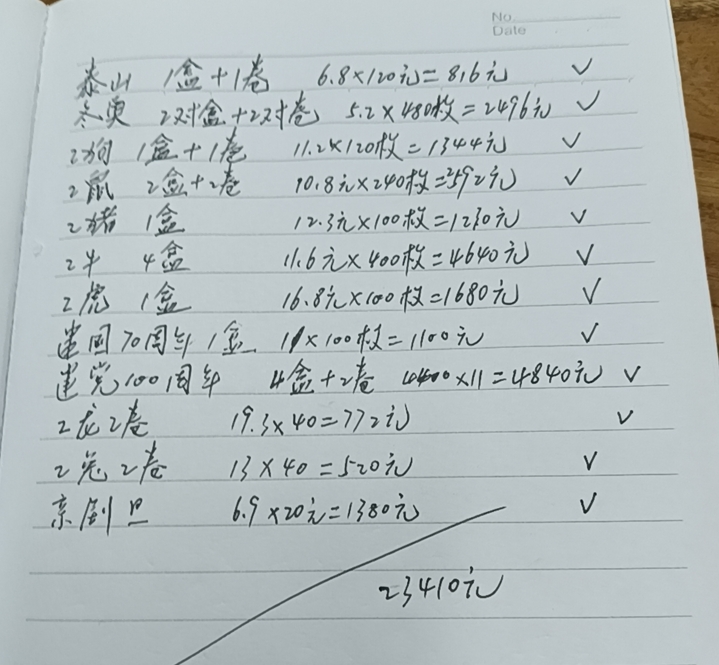 No.
Date
泰山 1盒+1卷 6.8×120元=816元 ✓
冬奥 2对盒+2对卷 5.2×480枚=2496元 ✓
2狗 1盒+1卷 11.2×120枚=1344元 ✓
2鼠 2盒+2卷 10.8元×240枚=2592元 ✓
2猪 1盒 12.3元×100枚=1230元 ✓
2牛 4盒 11.6元×400枚=4640元 ✓
2虎 1盒 16.8元×100枚=1680元 ✓
建国70周年 1盒 11×100枚=1100元 ✓
建党100周年 4盒+2卷 440×11=4840元 ✓
2龙2卷 19.3×40=772元 ✓
2兔2卷 13×40=520元 ✓
京剧旦 6.9×20元=1380元 ✓
23410元